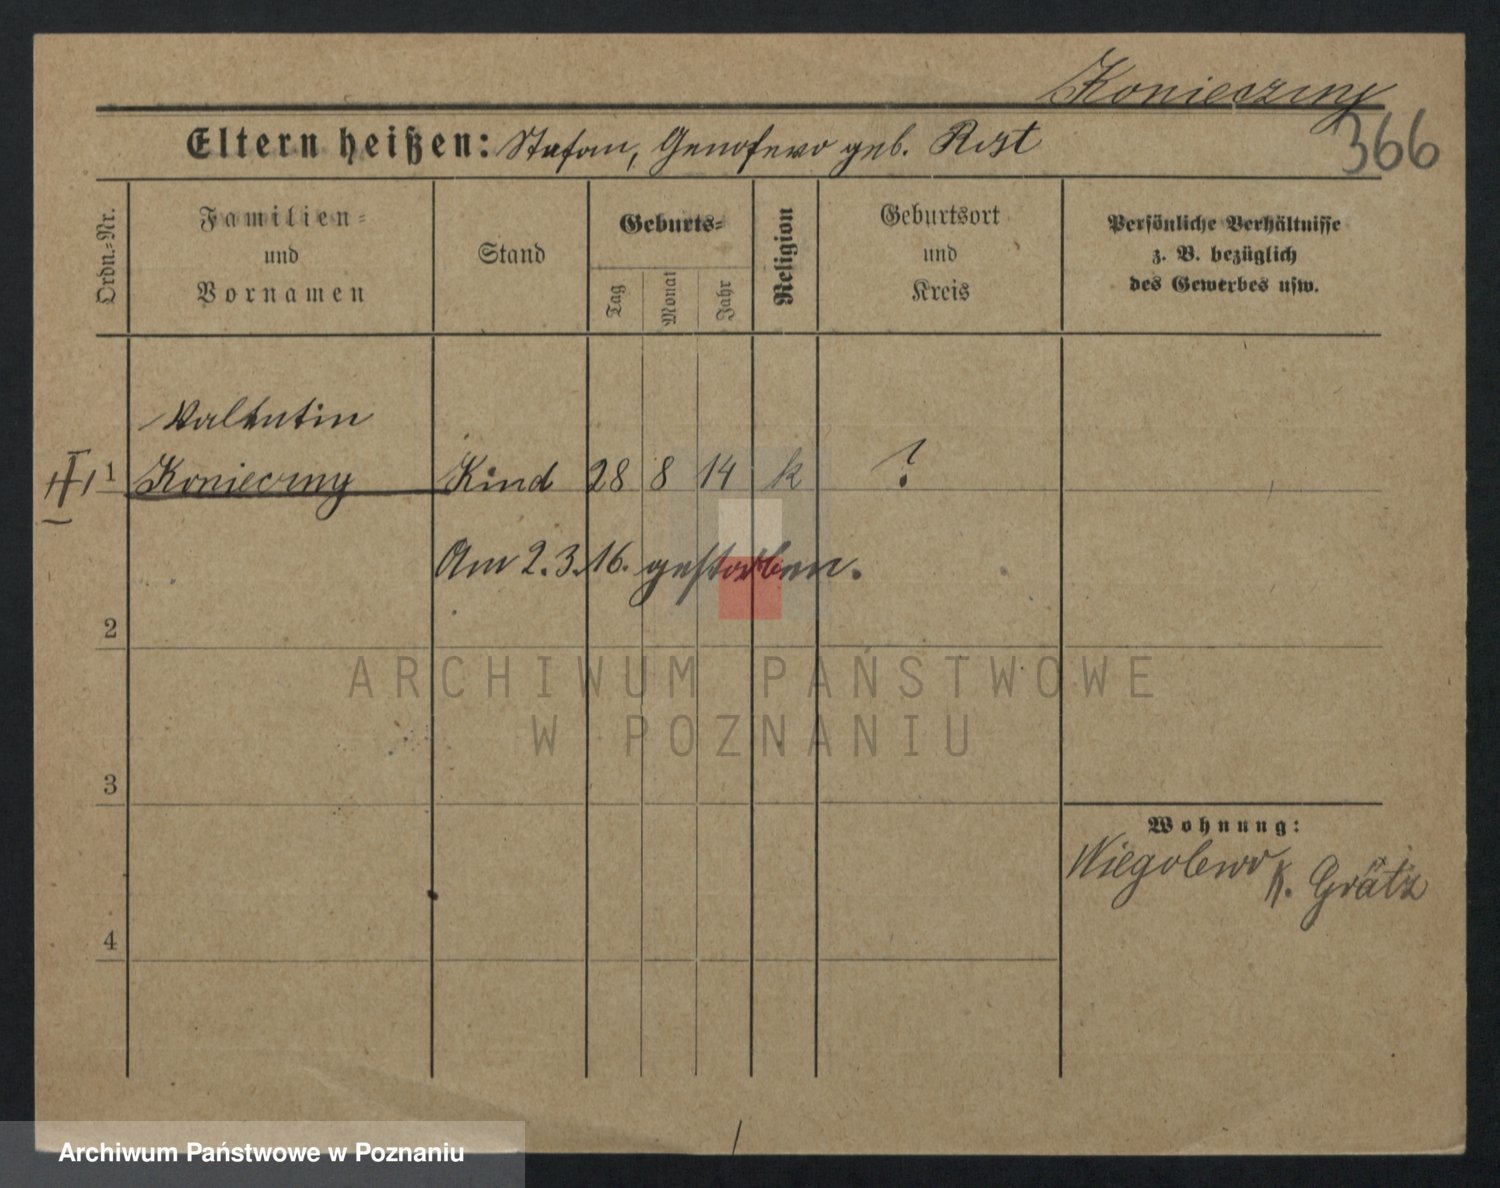 Konieczny
366
Eltern heißen: Stefan, Genofewo geb. Rist
Ordn.-Nr.
Familien-
und
Vornamen
Stand
Geburts-
Tag
Monat
Jahr
Religion
Geburtsort
und
Kreis
Persönliche Verhältnisse
z. B. bezüglich
des Gewerbes usw.
Valentin
1 Konieczny Kind 28 8 14 k ?
Am 2.3.16. gestorben.
2
ARCHIWUM PAŃSTWOWE
W POZNANIU
3
Wohnung:
Niegolewo K. Grätz
4
Archiwum Państwowe w Poznaniu